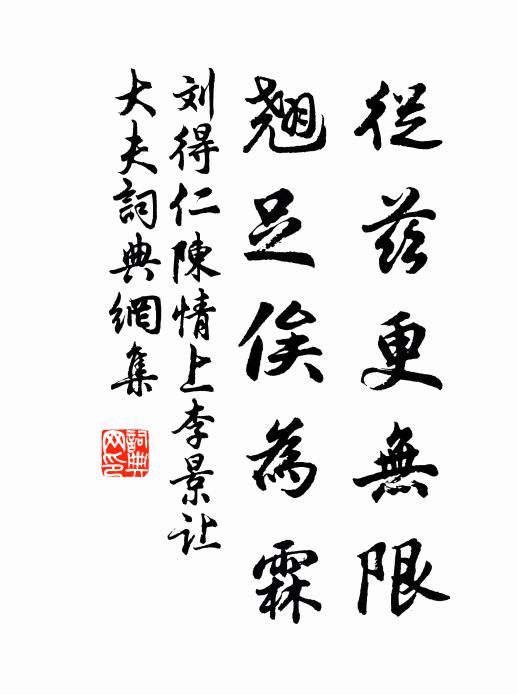 從茲更無限
翹足俟為霖
刘得仁陳情上李景让
大夫詞典網集
詞典网印